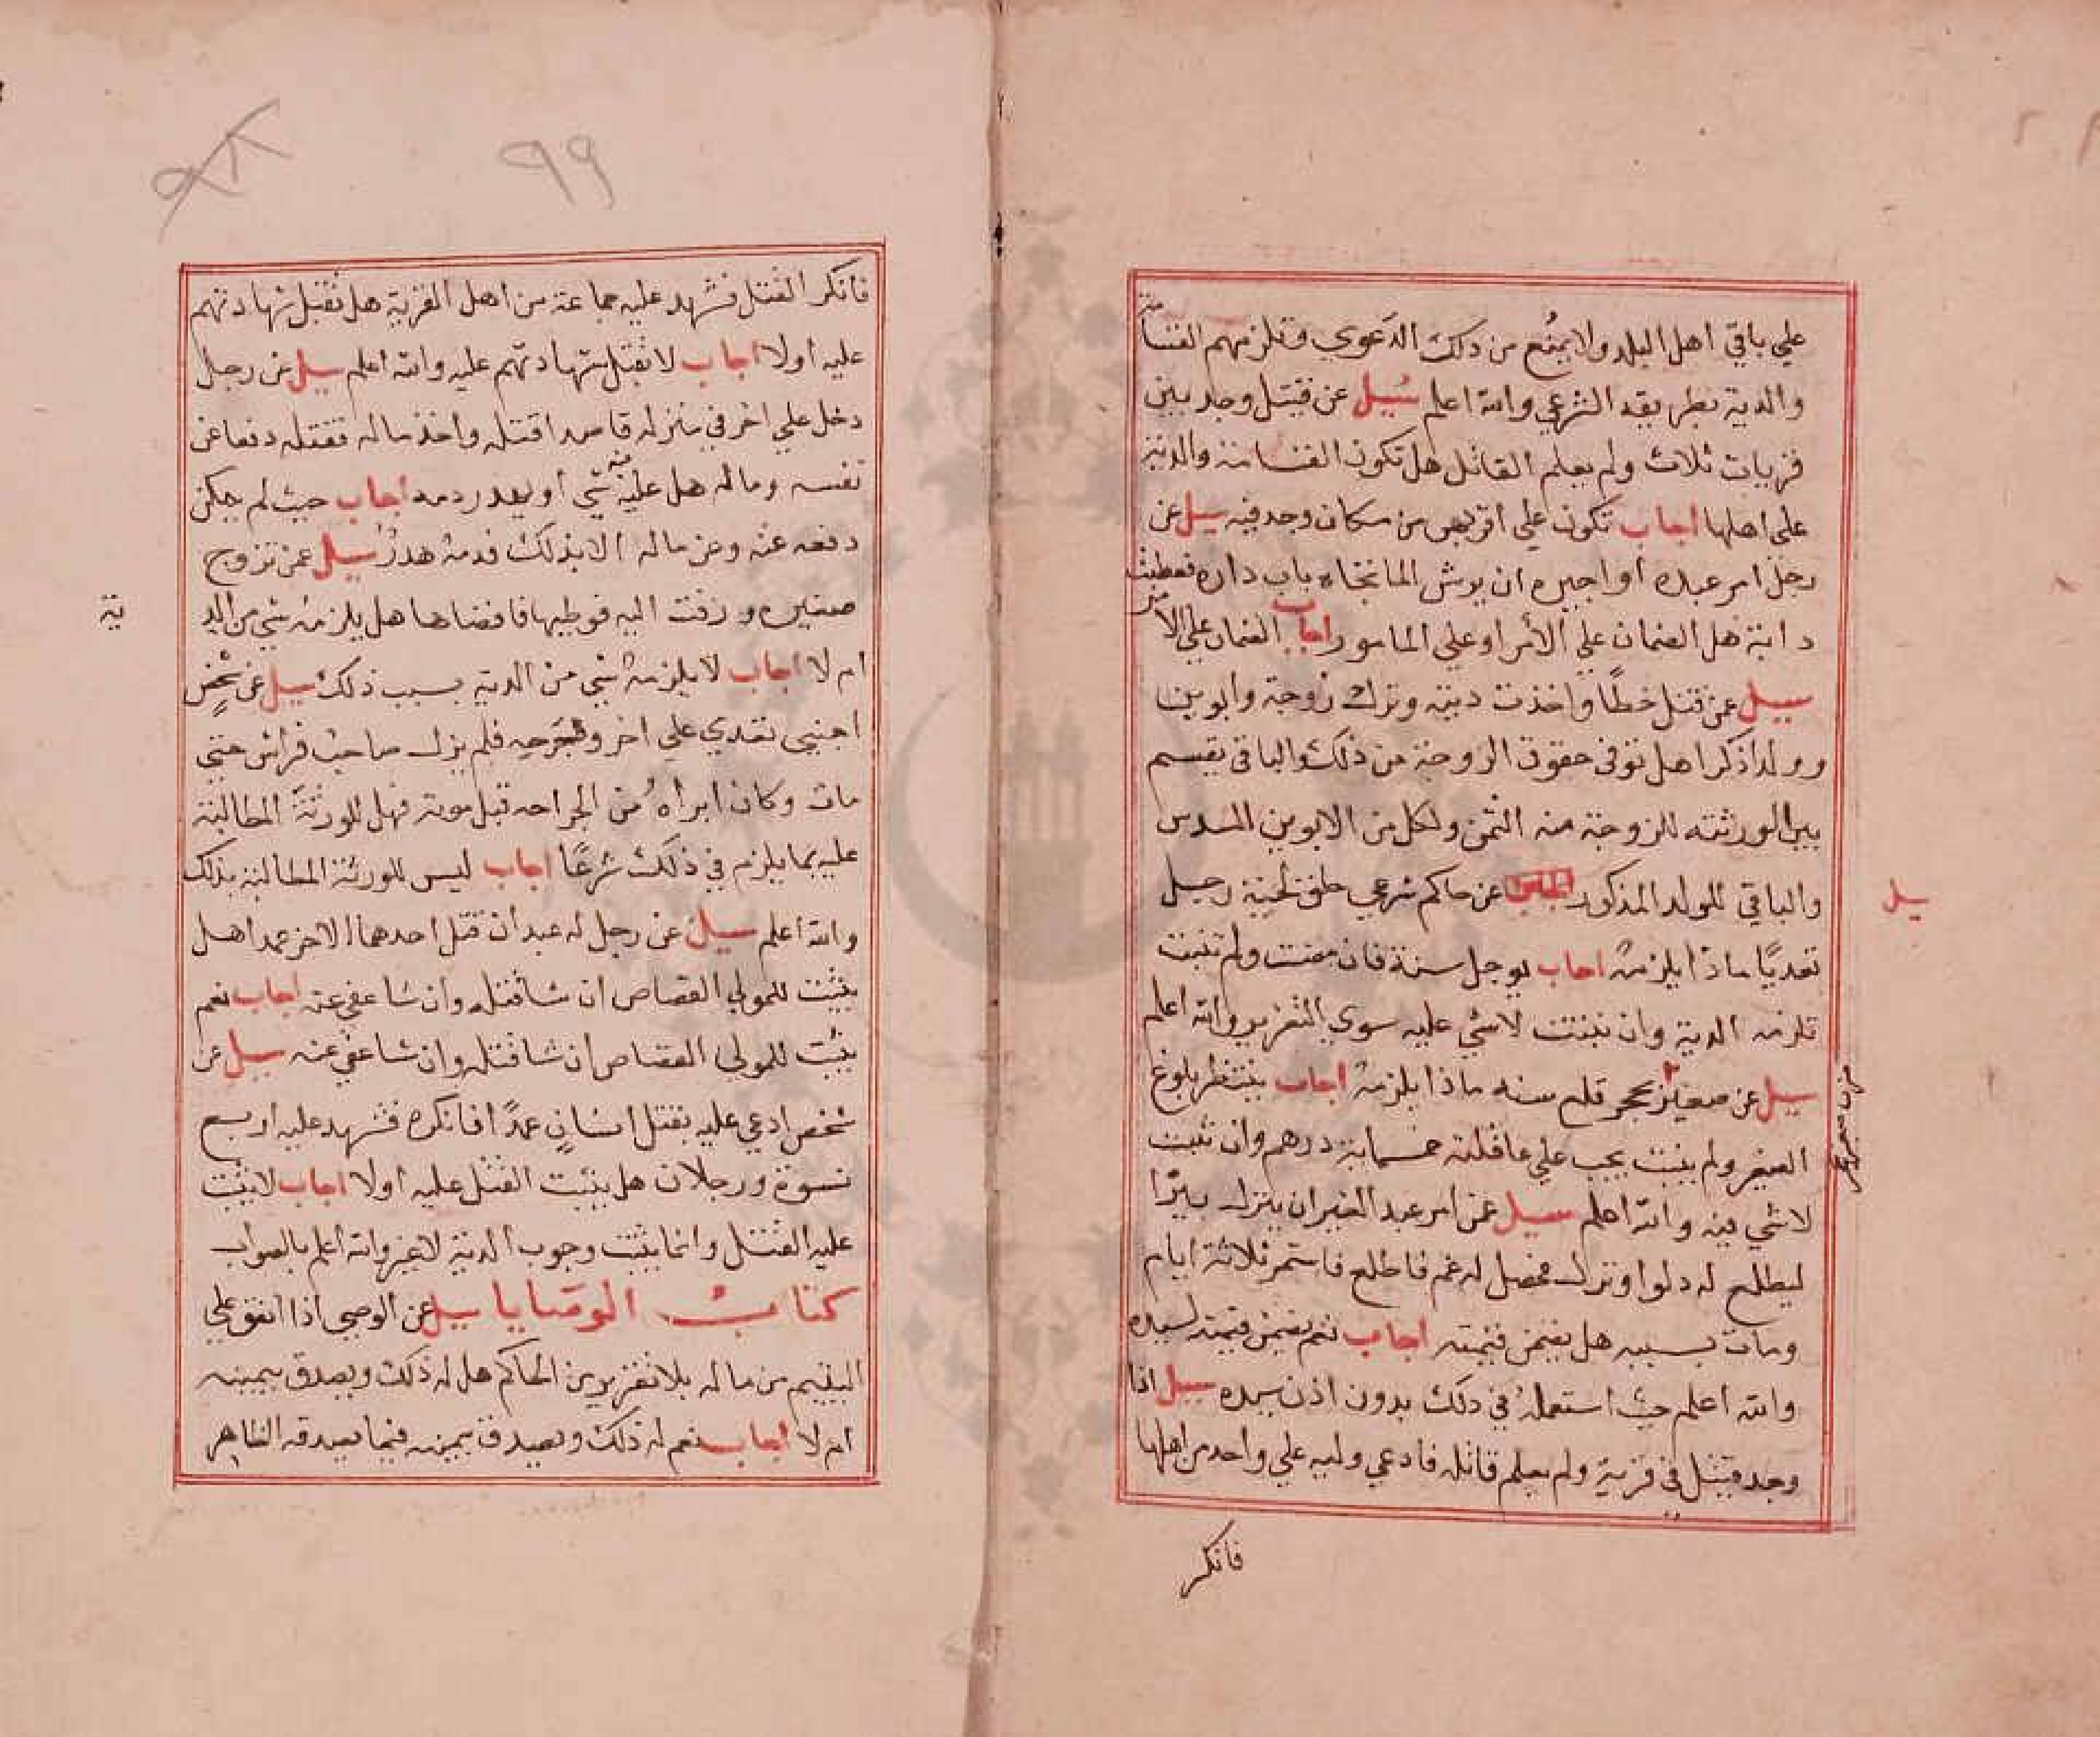 علي باقي اهل البلد ولا يمنع من ذلك الدعوي وتلزمهم القسامة
والدية بطريقه الشرعي والله اعلم سيل عن قتيل وجد بين
قريات ثلاث ولم يعلم القاتل هل تكون القسامة والدية
علي اهلها اجاب تكون علي اقربهن من مكان وجد فيه سيل عن
رجل امر عبده او اجيره ان يرش الما تجاه باب داره فعطبت
دابة هل الضمان علي الامر او علي المامور اجاب الضمان علي الامر
سيل عمن قتل خطأ واخذت ديته وترك زوجة وابوين
وولدا ذكرا هل توفي حقوق الزوجة من ذلك والباقي يقسم
بين الورثته للزوجة منه الثمن ولكل من الابوين السدس
والباقي للولد المذكور عن حاكم شرعي حلق لحية رجل
سيل
تعديا ماذا يلزمه اجاب يوجل سنة فان مضت ولم تنبت
تلزمه الدية وان نبتت لا شي عليه سوي التعزير والله اعلم
سيل عن صغير بحجر قلع سنه ماذا يلزمه اجاب ينتظر بلوغ
الصغير ولم ينبت يجب علي عاقلته خمسماية درهم وان نبت
لا شي فيه والله اعلم سيل عمن امر عبد الغير ان ينزل بيرا
ليطلع له دلوا ونزل فحصل له غم فاطلع فاستمر ثلاثة ايام
ومات بسببه هل يضمن قيمته اجاب نعم يضمن قيمته لسيده
والله اعلم حيث استعمله في ذلك بدون اذن سيده سيل اذا
وجد قتيل في قرية ولم يعلم قاتله فادعي وليه علي واحد من اهلها
فانكر
٩٩
فانكر القتل فشهد عليه جماعة من اهل القرية هل تقبل شهادتهم
عليه اولا اجاب لا تقبل شهادتهم عليه والله اعلم سيل عن رجل
دخل علي اخر في منزله قاصدا قتله واخذ ماله فقتله دفعا عن
نفسه وماله هل عليه فيه شي او يهدر دمه اجاب حيث لم يمكن
دفعه عنه وعن ماله الا بذلك فدمه هدر سيل عمن تزوج
صغيره وزفت اليه فوطيها فافضاها هل يلزمه شي من الد
ية
ام لا اجاب لا يلزمه شي من الدية بسبب ذلك سيل عن شخص
اجنبي تعدي علي اخر وجرحه فلم يزل صاحب فراش حتي
مات وكان ابراه من الجراحه قبل موته فهل للورثة المطالبة
عليه بما يلزم في ذلك شرعا اجاب ليس للورثة المطالبة بذلك
والله اعلم سيل عن رجل له عبدان قتل احدهما الاخر عمدا هل
يثبت للمولي القصاص ان شا قتله وان شا عفي عنه اجاب نعم
يثبت للمولي القصاص ان شا قتله وان شا عفي عنه سيل عن
شخص ادعي عليه بقتل انسان عمدا فانكره فشهد عليه اربع
نسوة ورجلان هل يثبت القتل عليه اولا اجاب لا يثبت
عليه القتل وانما يثبت وجوب الدية لا غير والله اعلم بالصواب
كتاب الوصايا سيل عن الوصي اذا انفق علي
اليتيم من ماله بلا تقرير من الحاكم هل له ذلك ويصدق بيمينه
ام لا اجاب نعم له ذلك ويصدق بيمينه فيما يصدقه الظاهر